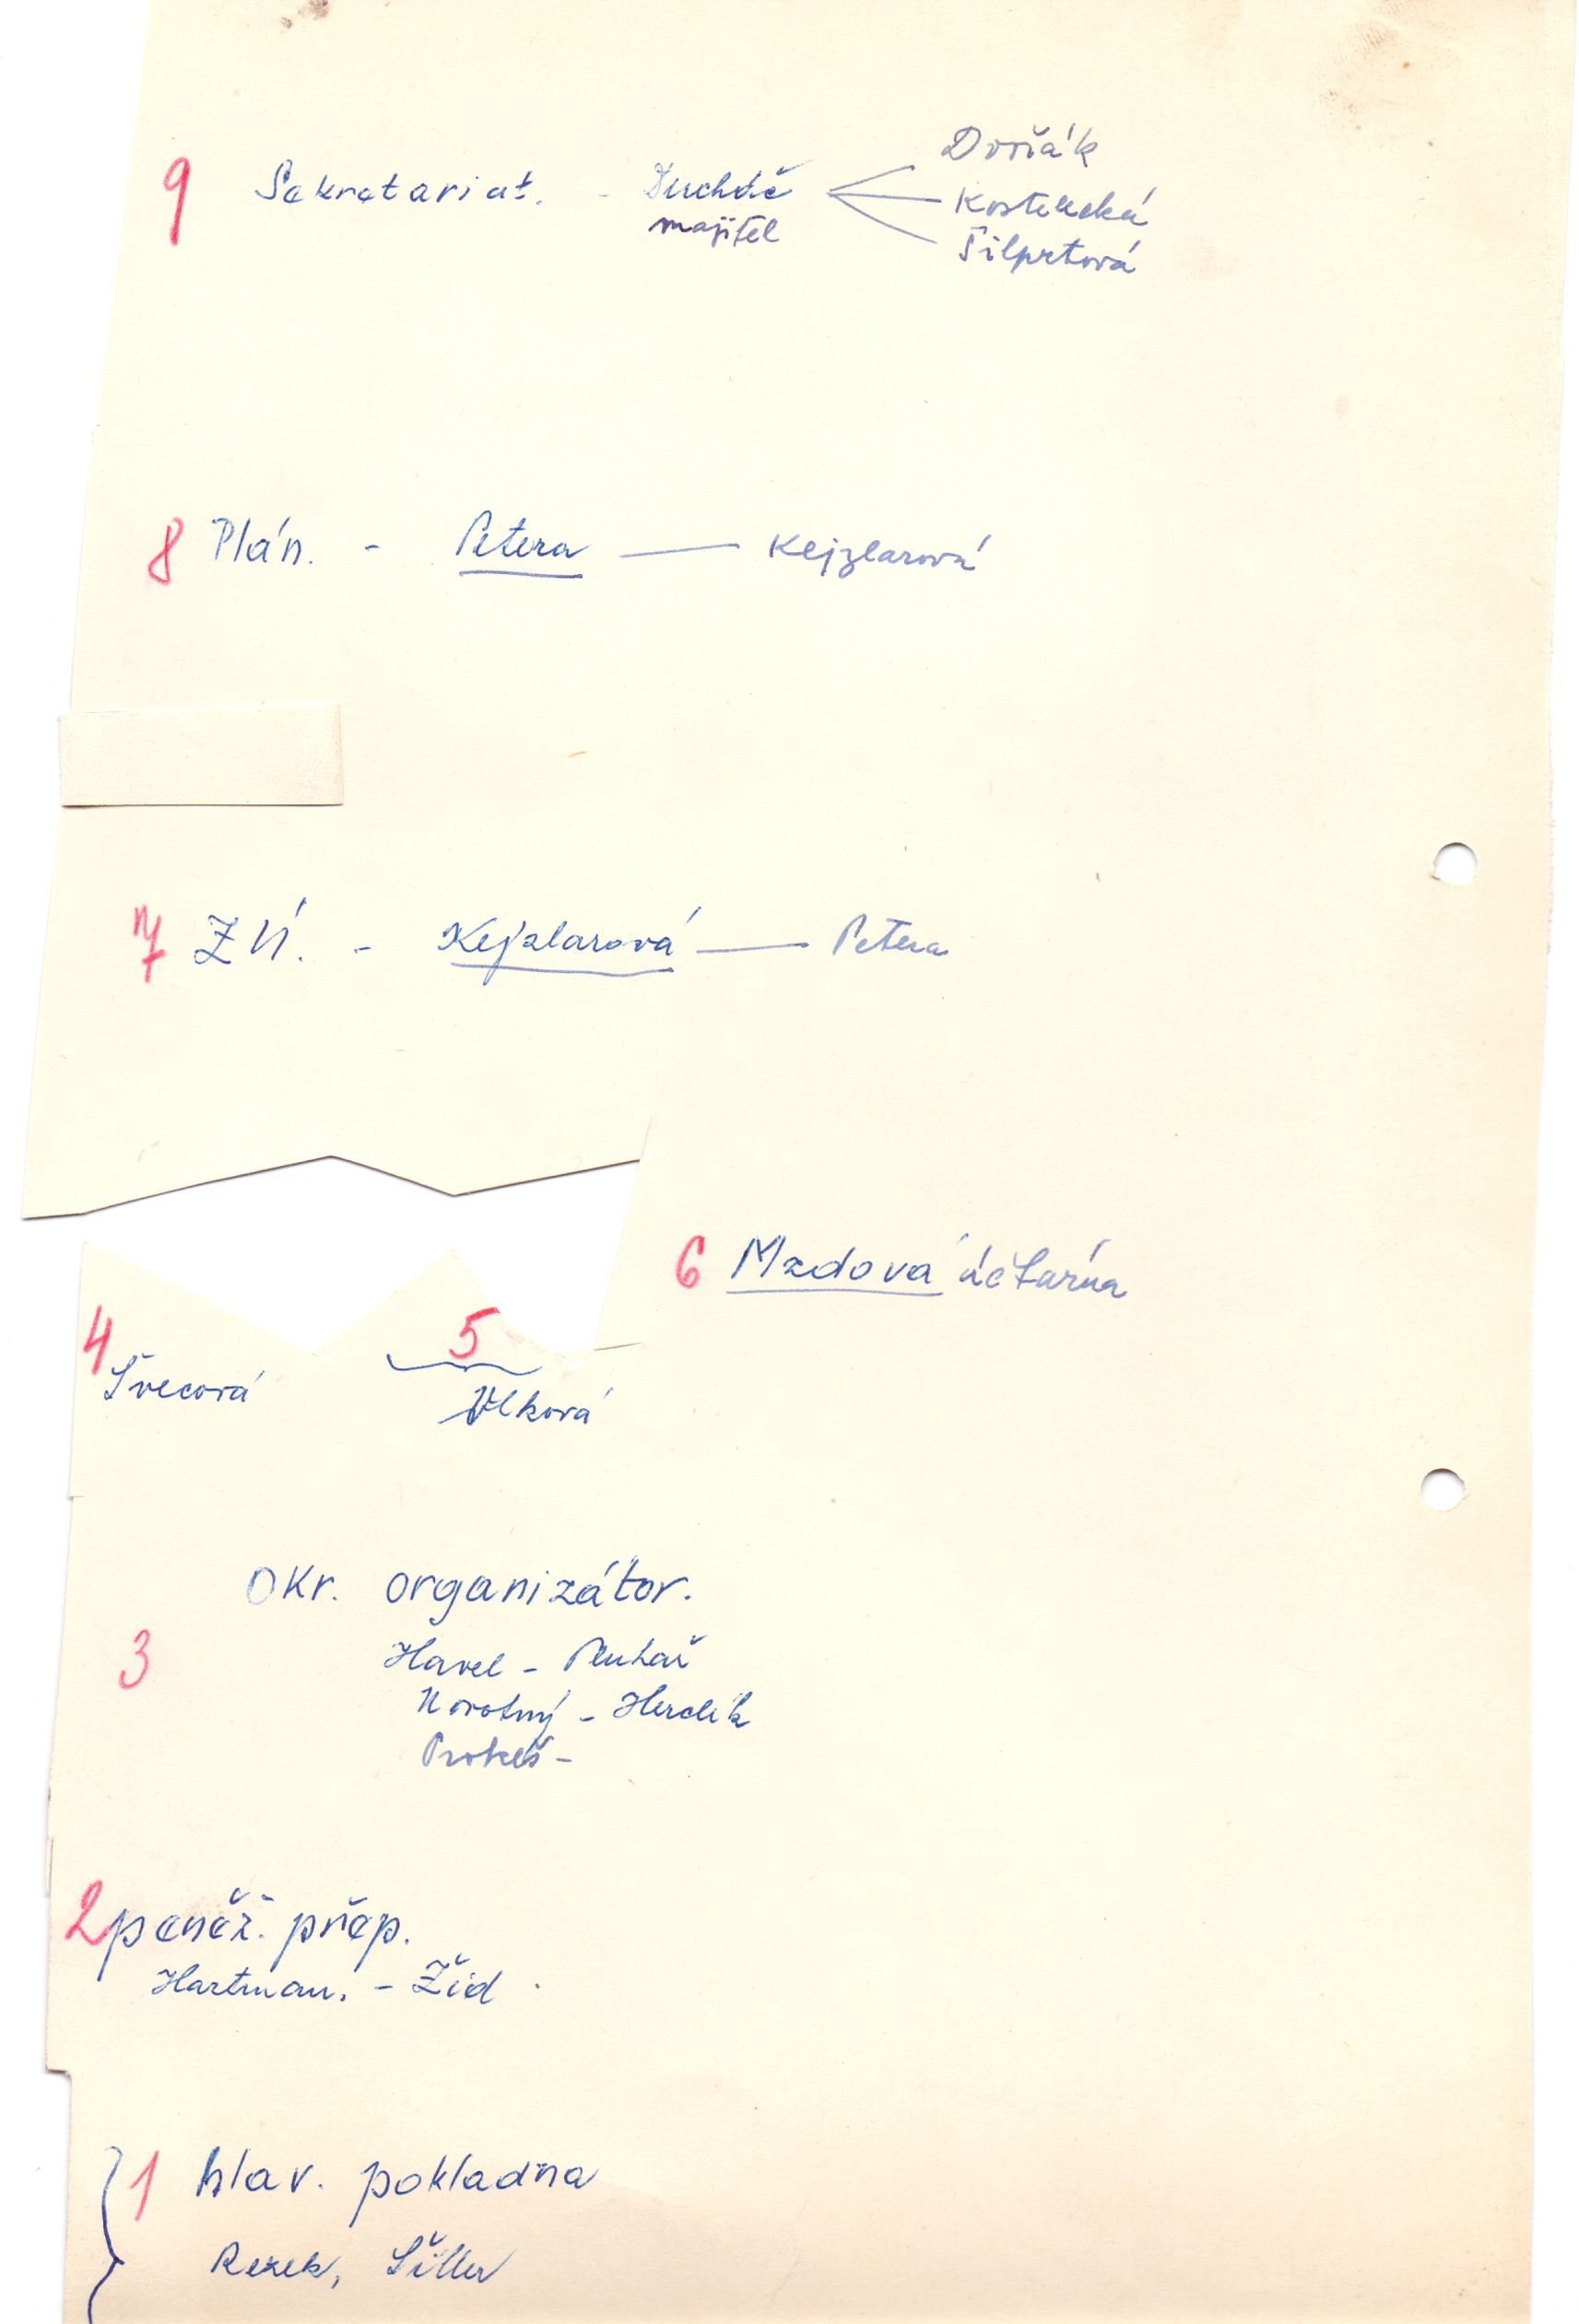 Dvořák
9 Sekretariat. - Ducháč Kostelecká
majitel Šilprtová
8 Plán. - Petera — Kejzlarová
7 ZÚ. - Kejzlarová — Petera
6 Mzdová účtárna
4 5
Švecová Vlková
okr. organizátor.
3 Havel - Pluhař
Novotný - Herclík
Prokeš -
2 peněž. přep.
Hartman. - Žid
1 hlav. pokladna
Rezek, Šiller